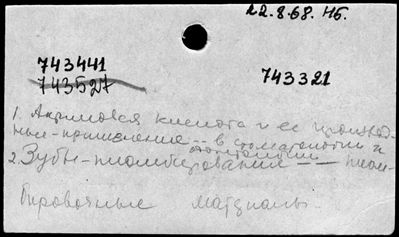 22.8.68. Нб.
743441
743527
743321
1. Акриловая кислота и ее производ-
ные - применение -- в стоматологии и
онтологии
2. Зубы - пломбирование -- плом-
бировочные материалы.